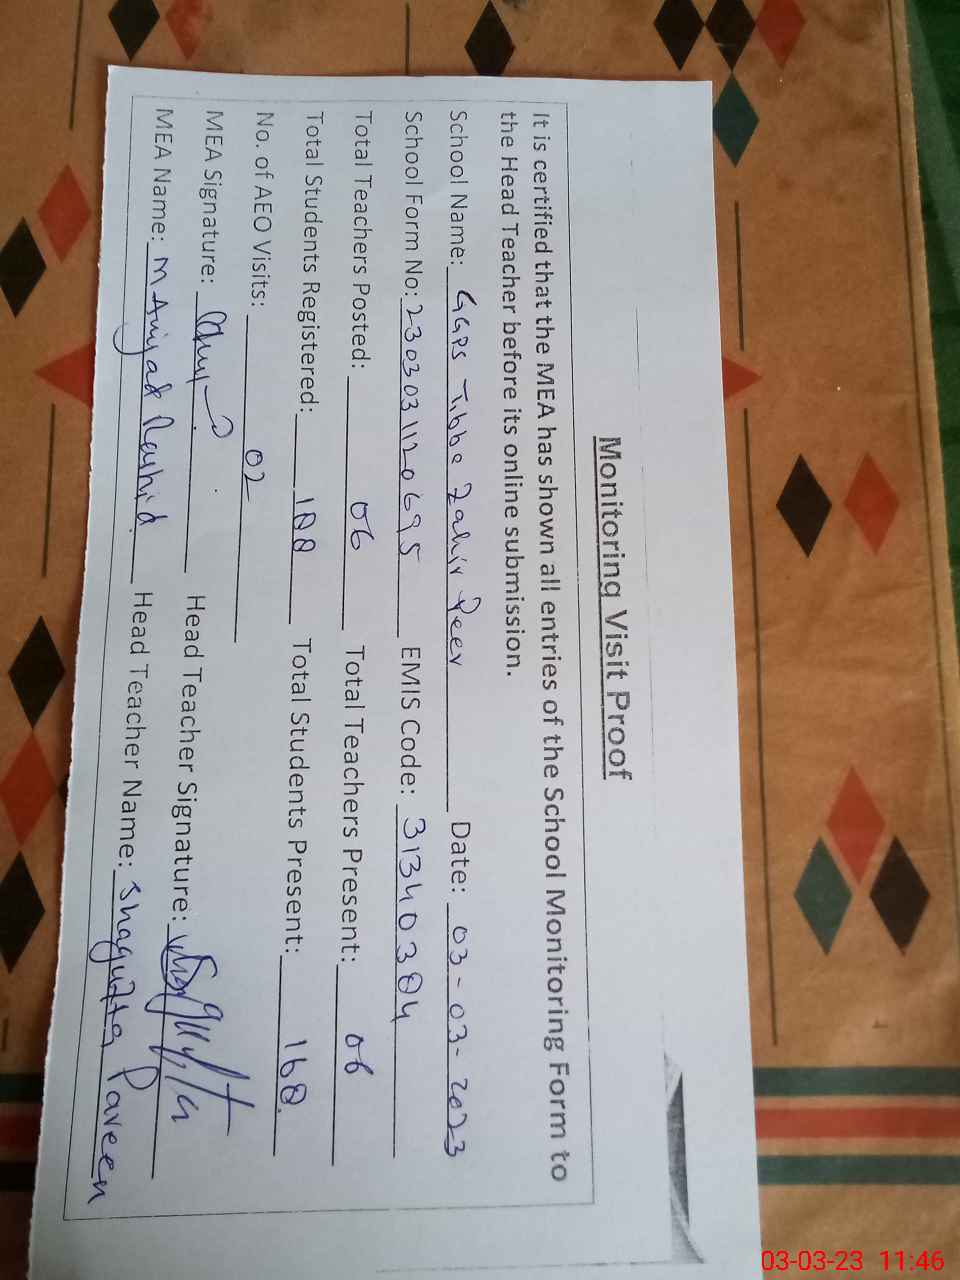 Monitoring Visit Proof
It is certified that the MEA has shown all entries of the School Monitoring Form to
the Head Teacher before its online submission.
School Name: GGPS Tibba Zahir Peer Date: 03-03-2023
School Form No: 23030311120695 EMIS Code: 31340384
Total Teachers Posted: 06 Total Teachers Present: 06
Total Students Registered: 188 Total Students Present: 168
No. of AEO Visits: 02
MEA Signature: Head Teacher Signature:
MEA Name: M Rashid Head Teacher Name: Shagufta Paveen
03-03-23 11:46